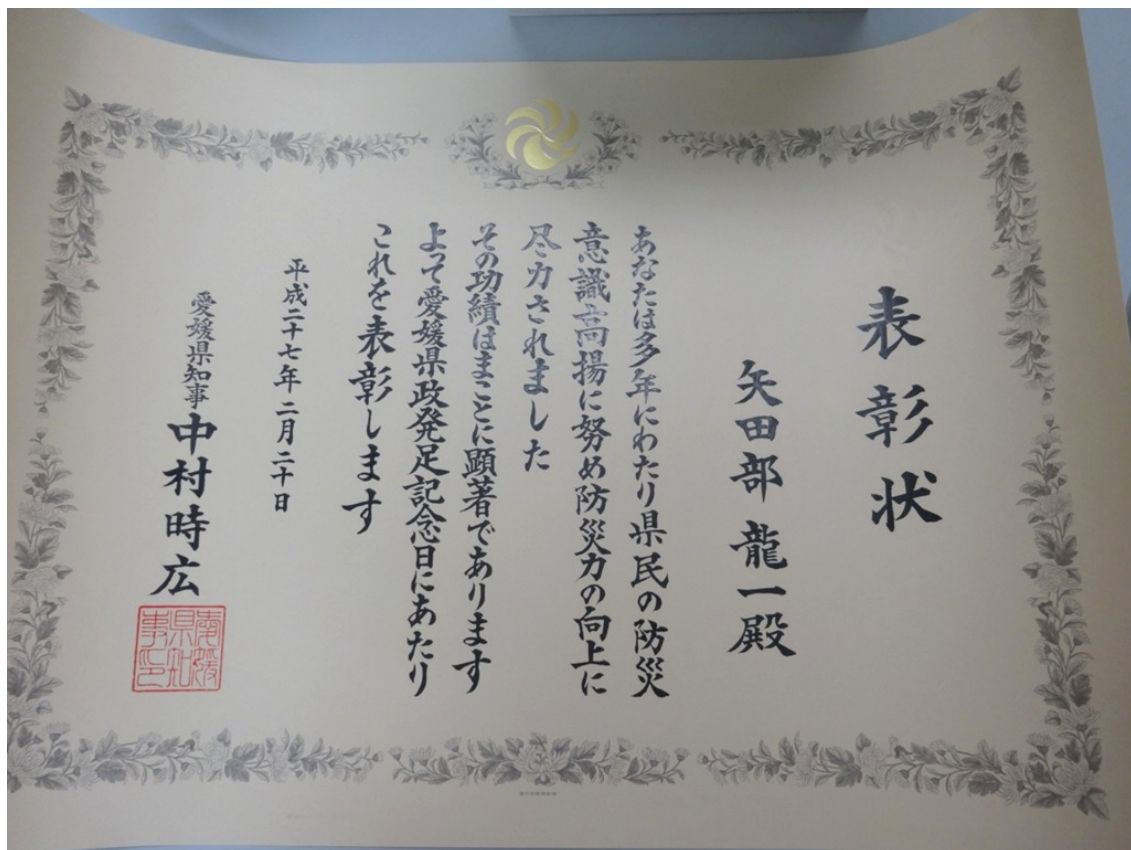 表彰状
矢田部龍一殿
あなたは多年にわたり県民の防災
意識高揚に努め防災力の向上に
尽力されました
その功績はまことに顕著であります
よって愛媛県政発足記念日にあたり
これを表彰します
平成二十七年二月二十日
愛媛県知事 中村時広
愛媛県知事印